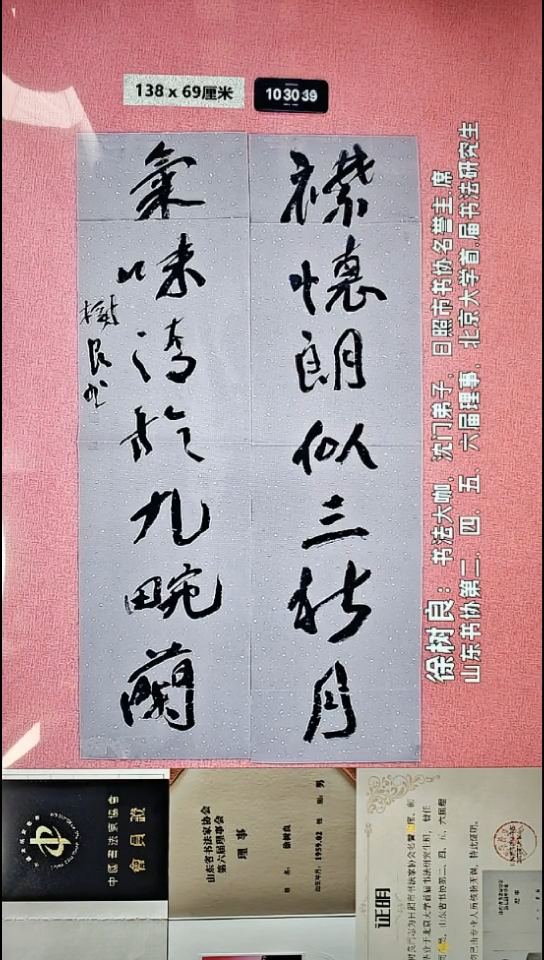 138 x 69厘米
10 30 39
襟懷朗似三秋月
氣味清於九畹蘭
樹良書
徐树良：书法大咖，沈门弟子，日照市书协名誉主席
山东书协第二、四、五、六届理事，北京大学首届书法研究生
中國書法家協會
會員證
山东省书法家协会
第六届理事会
理 事
姓 名：徐树良
性 别：男
出生年月：1959.02
证明